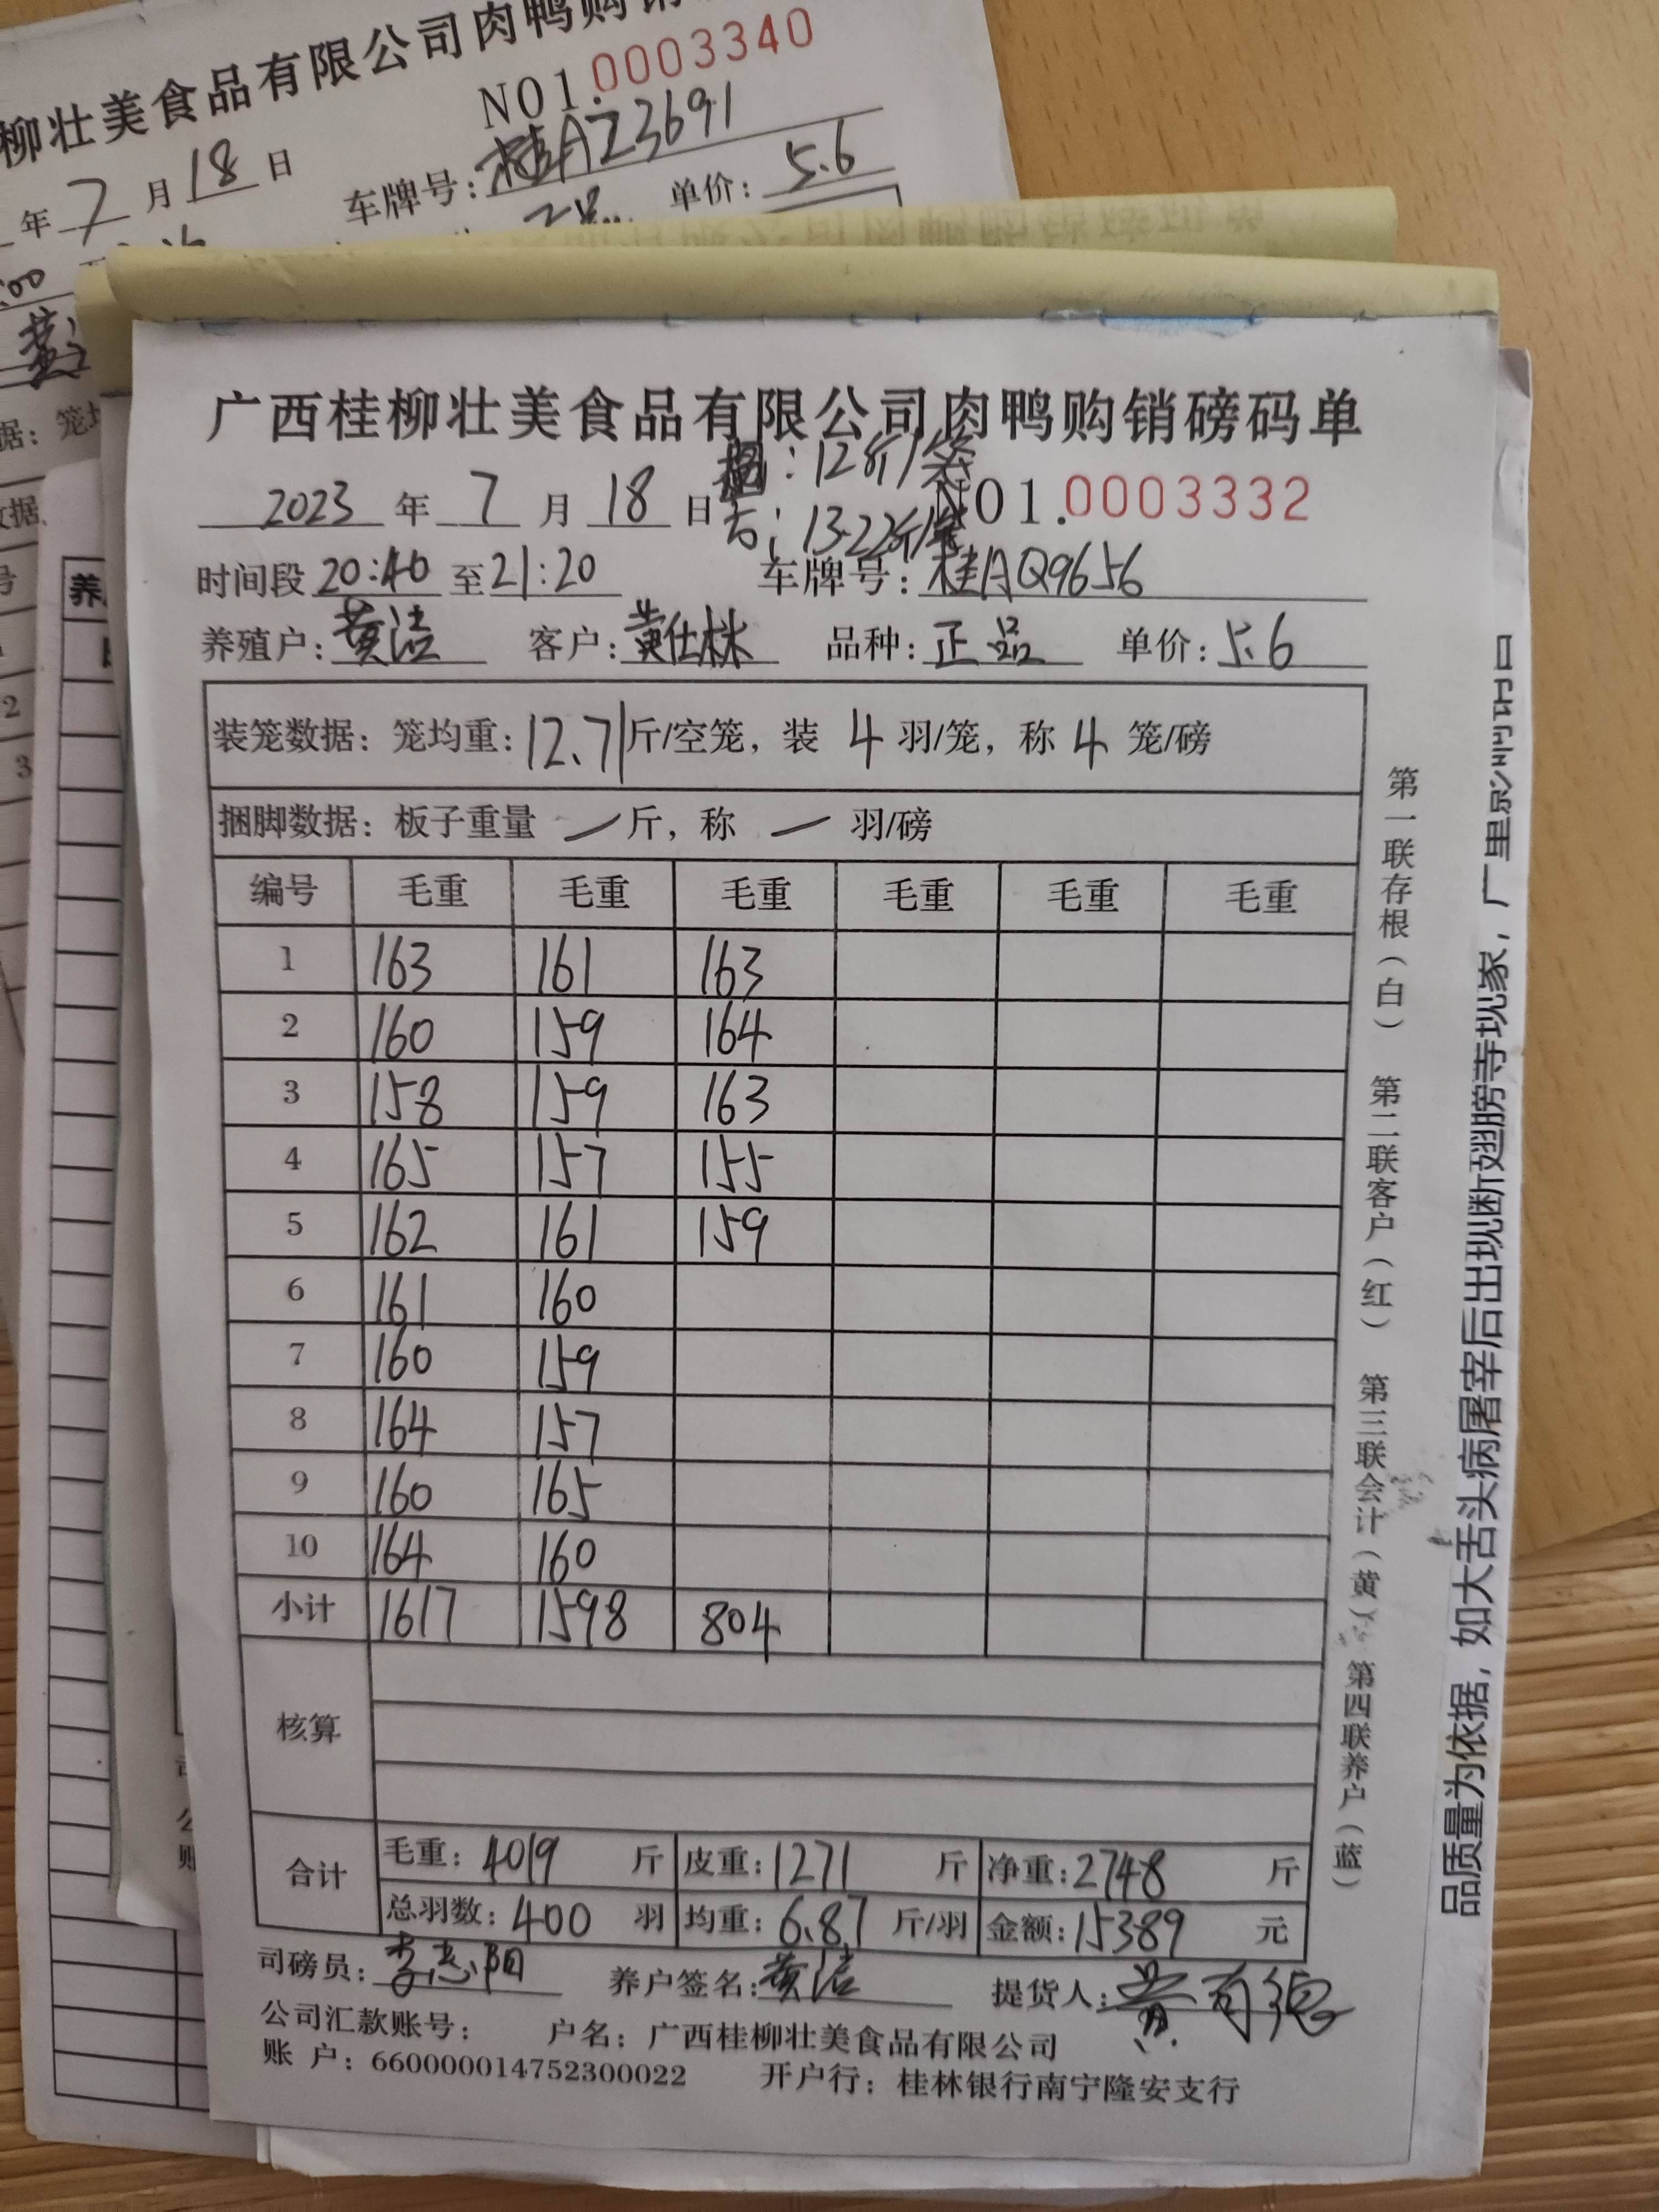 柳壮美食品有限公司肉鸭购销
NO1.0003340
年7月18日 车牌号:桂AZ3691
单价:5.6
广西桂柳壮美食品有限公司肉鸭购销磅码单
:12斤/笼
2023年7月18日 NO1.0003332
:13.22斤/笼
时间段20:40至21:20 车牌号:桂AQ9656
养殖户:黄洁 客户:黄仕林 品种:正品 单价:5.6
装笼数据:笼均重:12.71斤/空笼,装4羽/笼,称4笼/磅
捆脚数据:板子重量 一 斤,称 一 羽/磅
编号 毛重 毛重 毛重 毛重 毛重 毛重
1 163 161 163
2 160 159 164
3 158 159 163
4 165 157 155
5 162 161 159
6 161 160
7 160 159
8 164 157
9 160 165
10 164 160
小计 1617 1598 804
核算
合计 毛重:4019斤 皮重:1271斤 净重:2748斤
总羽数:400羽 均重:6.87斤/羽 金额:15389元
司磅员:李志阳 养户签名:黄洁 提货人:黄
公司汇款账号: 户名:广西桂柳壮美食品有限公司
账 户:660000014752300022 开户行:桂林银行南宁隆安支行
第一联存根(白) 第二联客户(红) 第三联会计(黄) 第四联养户(蓝)
品质量为依据,如大舌头病屠宰后出现断翅膀等现象,